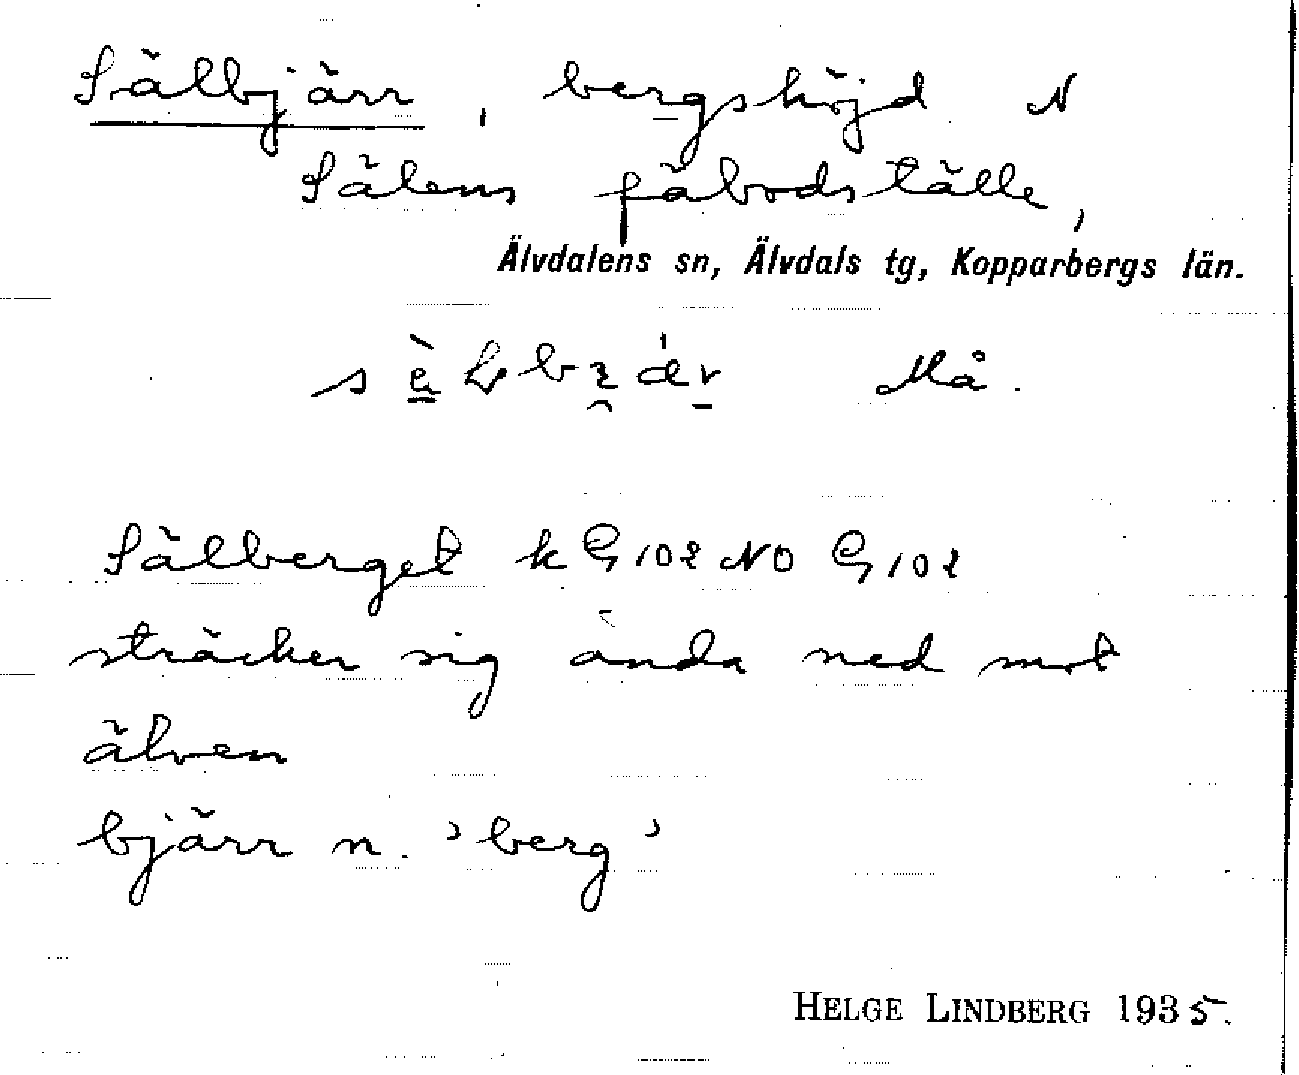 Sälbjärr, bergshöjd N
Sälens fäbodställe,
Älvdalens sn, Älvdals tg, Kopparbergs län.
Må.
Sälberget k G102 NO G102
sträcker sig ända ned mot
älven
bjärr n. 'berg'
HELGE LINDBERG 1935.